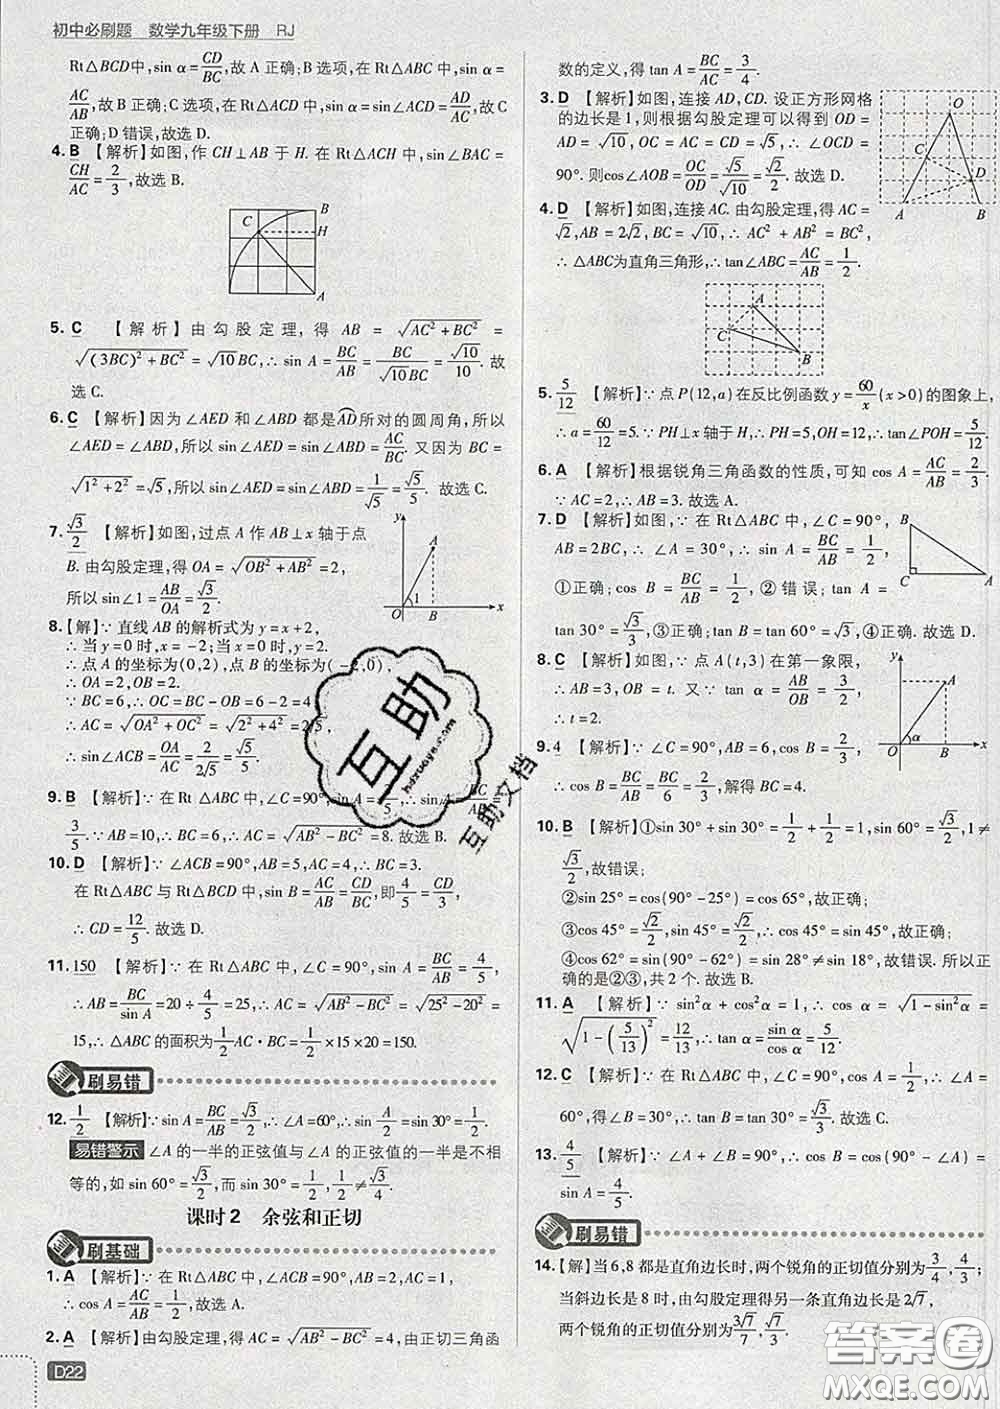 初中必刷题 数学九年级下册 RJ
Rt△BCD中,sin α=CD/BC,故 A 正确;B 选项,在 Rt△ABC 中,sin α=
AC/AB,故 B 正确;C 选项,在 Rt△ACD 中,sin α=sin∠ACD=AD/AC,故 C
正确;D 错误,故选 D.
4. B 【解析】如图,作 CH⊥AB 于 H. 在 Rt△ACH 中,sin∠BAC=
CH/AC=2/3,故选 B.
B
C
H
A
5. C 【解析】由勾股定理,得 AB = √(AC²+BC²) =
√((3BC)²+BC²)=√10BC,∴ sin A=BC/AB=BC/(√10BC)=√10/10. 故
选 C.
6. C 【解析】因为∠AED 和∠ABD 都是AD所对的圆周角,所以
∠AED=∠ABD,所以 sin∠AED=sin∠ABD=AC/BC. 又因为 BC=
√(1²+2²)=√5,所以 sin∠AED=sin∠ABD=1/√5=√5/5. 故选 C.
7. √3/2 【解析】如图,过点 A 作 AB⊥x 轴于点
B. 由勾股定理,得 OA=√(OB²+AB²)=2,
所以 sin∠1=AB/OA=√3/2.
y
A
1
O
B
x
8.【解】∵ 直线 AB 的解析式为 y=x+2,
∴ 当 y=0 时,x=-2;当 x=0 时,y=2.
∴ 点 A 的坐标为(0,2),点 B 的坐标为(-2,0),
∴ OA=2,OB=2.
∵ BC=6,∴ OC=BC-OB=6-2=4,
∴ AC=√(OA²+OC²)=√(2²+4²)=2√5,
∴ sin∠ACB=OA/AC=2/(2√5)=√5/5.
9. B 【解析】∵ 在 Rt△ABC 中,∠C=90°,sin A=3/5,∴ sin A=BC/AB=
3/5. ∵ AB=10,∴ BC=6,∴ AC=√(AB²-BC²)=8. 故选 B.
10. D 【解析】∵ ∠ACB=90°,AB=5,AC=4,∴ BC=3.
在 Rt△ABC 与 Rt△BCD 中,sin B=AC/AB=CD/BC,即4/5=CD/3,
∴ CD=12/5. 故选 D.
11. 150 【解析】∵ 在 Rt△ABC 中,∠C=90°,sin A=BC/AB=4/5,
∴ AB=BC/sin A=20÷4/5=25,∴ AC=√(AB²-BC²)=√(25²-20²)=
15,∴ △ABC 的面积为1/2AC·BC=1/2×15×20=150.
刷易错
12. 1/2 【解析】∵ sin A=BC/AB=√3/2,∴ ∠A=60°,∴ sin A/2=sin30°=1/2.
易错警示 ∠A 的一半的正弦值与∠A 的正弦值的一半是不相
等的,如 sin 60°=√3/2,而 sin 30°=1/2,1/2≠√3/4.
课时 2 余弦和正切
刷基础
1. A 【解析】∵ 在 Rt△ABC 中,∠C=90°,AB=2,AC=1,
∴ cos A=AC/AB=1/2. 故选 A.
2. A 【解析】由勾股定理,得 AC=√(AB²-BC²)=4,由正切三角函
D22
数的定义,得 tan A=BC/AC=3/4.
3. D 【解析】如图,连接 AD,CD. 设正方形网格
的边长是 1,则根据勾股定理可以得到 OD=
AD=√10,OC=AC=CD=√5,∴ ∠OCD=
90°. 则cos∠AOB=OC/OD=√5/√10=√2/2. 故选 D.
O
C
D
A
B
4. D 【解析】如图,连接 AC. 由勾股定理,得 AC=
√2,AB=2√2,BC=√10,∴ AC²+AB²=BC²,
∴ △ABC为直角三角形,∴ tan∠ABC=AC/AB=1/2.
A
C
B
5. 5/12 【解析】∵ 点 P(12,a)在反比例函数 y=60/x(x>0)的图象上,
∴ a=60/12=5. ∵ PH⊥x 轴于 H,∴ PH=5,OH=12,∴ tan∠POH=5/12.
6. A 【解析】根据锐角三角函数的性质,可知 cos A=AC/AB=2/3.
∵ AC=2,∴ AB=3. 故选 A.
7. D 【解析】如图,∵ 在 Rt△ABC 中,∠C=90°,
AB=2BC,∴ ∠A=30°,∴ sin A=BC/AB=1/2,
①正确;cos B=BC/AB=1/2,②错误;tan A=
tan 30°=√3/3,③正确;tan B=tan 60°=√3,④正确. 故选 D.
B
C
A
8. C 【解析】如图,∵ 点 A(t,3)在第一象限,
∴ AB=3,OB=t. 又∵ tan α=AB/OB=3/2,
∴ t=2.
y
A
α
O
B
x
9. 4 【解析】∵ ∠C=90°,AB=6,cos B=2/3,
∴ cos B=BC/AB=BC/6=2/3,解得 BC=4.
10. B 【解析】①sin 30°+sin 30°=1/2+1/2=1,sin 60°=√3/2,1≠
√3/2,故错误;
②sin 25°=cos(90°-25°)=cos 65°,故正确;
③cos 45°=√2/2,sin 45°=√2/2,∴ cos 45°=sin 45°,故正确;
④cos 62°=sin(90°-62°)=sin 28°≠sin 18°,故错误. 所以正
确的是②③,共 2 个. 故选 B.
11. A 【解析】∵ sin²α+cos²α=1,∴ cos α=√(1-sin²α)=
√(1-(5/13)²)=12/13,∴ tan α=sin α/cos α=5/12.
12. C 【解析】∵ 在 Rt△ABC 中,∠C=90°,cos A=1/2,∴ ∠A=
60°,得∠B=30°,∴ tan B=tan 30°=√3/3. 故选 C.
13. 4/5 【解析】∵ ∠A+∠B=90°,∴ cos B=cos(90°-∠A)=
sin A=4/5.
刷易错
14.【解】当 6,8 都是直角边长时,两个锐角的正切值分别为3/4,4/3;
当斜边长是 8 时,由勾股定理得另一条直角边长是 2√7,
两个锐角的正切值分别为3√7/7,√7/3.
互助
互助文档
答案圈
MXQE.COM